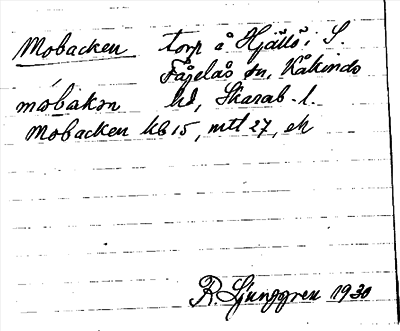 Mobacken torp å Hjälls i S.
Fågelås sn, Kåkinds
mobakən hd, Skarab. l.
Mobacken kb 15, mtl 27, ek
R. Ljunggren 1930